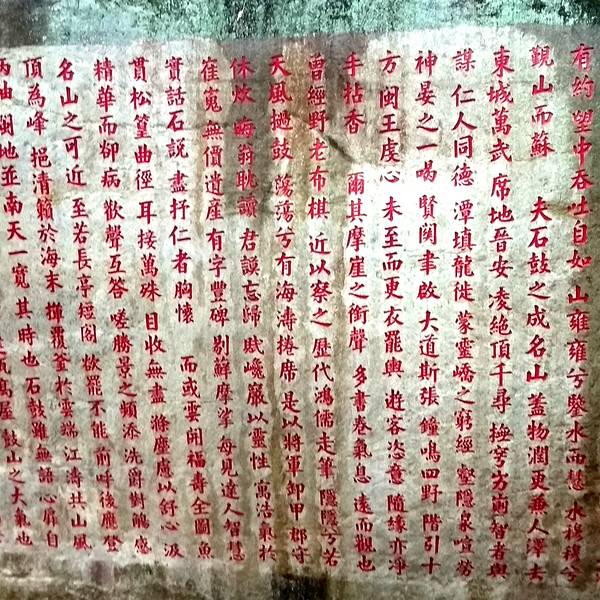 有約望中吞吐自如山雍雍兮鑒水而慧水穆穆兮
觀山而蘇 夫石鼓之成名山蓋物潤更兼人澤去
東城萬武席地晉安凌絕頂千尋極穹方廟智者與
謀仁人同德潭填龍徙蒙靈嶠之窮經壑隱泉喧勞
神晏之一喝賢関聿啟大道斯張鐘鳴四野階引十
方閩王虔心未至而更衣罷輿遊客恣意隨緣亦凈
手拈香 爾其摩崖之銜聲多書卷氣息遠而觀也
曾經野老布棋近以察之歷代鴻儒走筆隱隱兮若
天風撾鼓蕩蕩兮有海濤捲席是以將軍卸甲郡守
休炊晦翁耽讀君謨忘歸賦巉巖以靈性寓浩氣於
崔嵬無價遺産有字豐碑剔蘚摩挲每見達人智慧
實話石説盡抒仁者胸懷 而或雲開福壽全圖魚
貫松篁曲徑耳接萬殊目收無盡滌塵慮以舒心汲
精華而卻病歡聲互答嗟勝景之頻添洗爵對觴感
名山之可近至若長亭短閣欲罷不能前呼後應登
頂為峰挹清籟於海末揮覆釜於雲端江濤共山風
閩地並南天一寬其時也石鼓雖無語心扉自
鼓山之大氣也